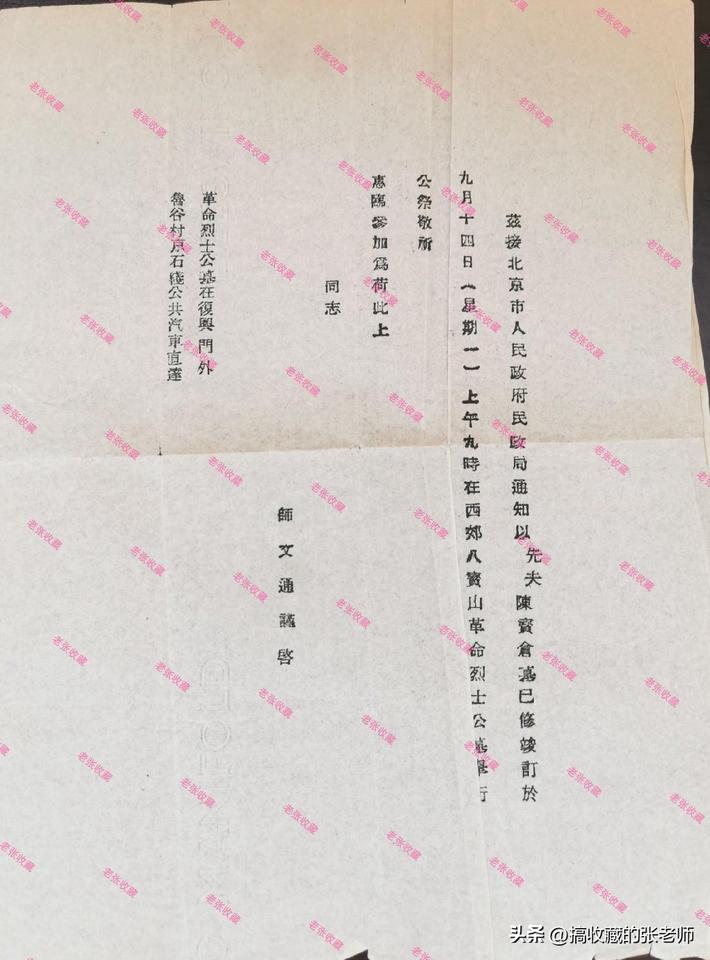 茲接北京市人民政府民政局通知以先夫陳寶倉墓已修竣訂於
九月十四日（星期一）上午九時在西郊八寶山革命烈士公墓舉行
公祭敬祈
惠臨參加爲荷此上
同志
師文通謹啓
革命烈士公墓在復興門外
魯谷村京石綫公共汽車直達
老张收藏
头条 @搞收藏的张老师